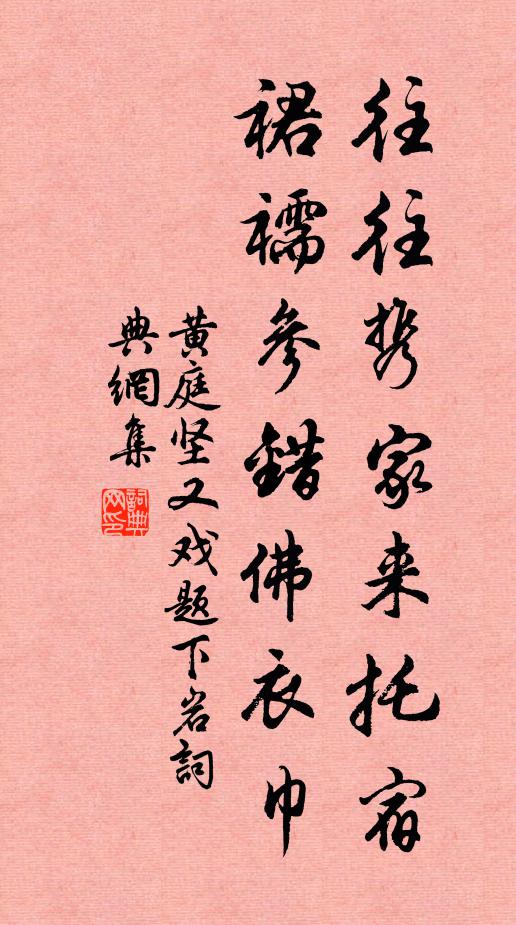 往往携家来托宿
裙襦參錯佛衣巾
黄庭坚又戏题下岩詞
典網集
詞典网印